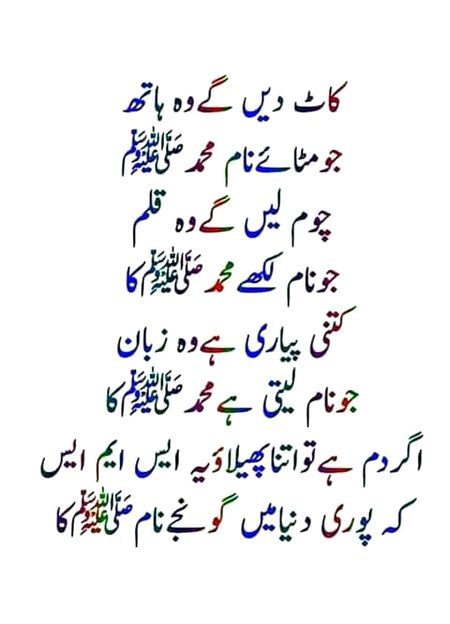 کاٹ دیں گے وہ ہاتھ
جو مٹائے نام محمد ﷺ
چوم لیں گے وہ قلم
جو نام لکھے محمد ﷺ کا
کتنی پیاری ہے وہ زبان
جو نام لیتی ہے محمد ﷺ کا
اگر دم ہے تو اتنا پھیلاؤ یہ ایس ایم ایس
کہ پوری دنیا میں گونجے نام ﷺ کا